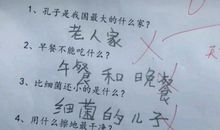 1、孔子是我国最大的什么家?
老人家
2、早餐不能吃什么?
午餐和晚餐
3、比细菌还小的是什么?
细菌的儿子
4、用什么擦地最干净?